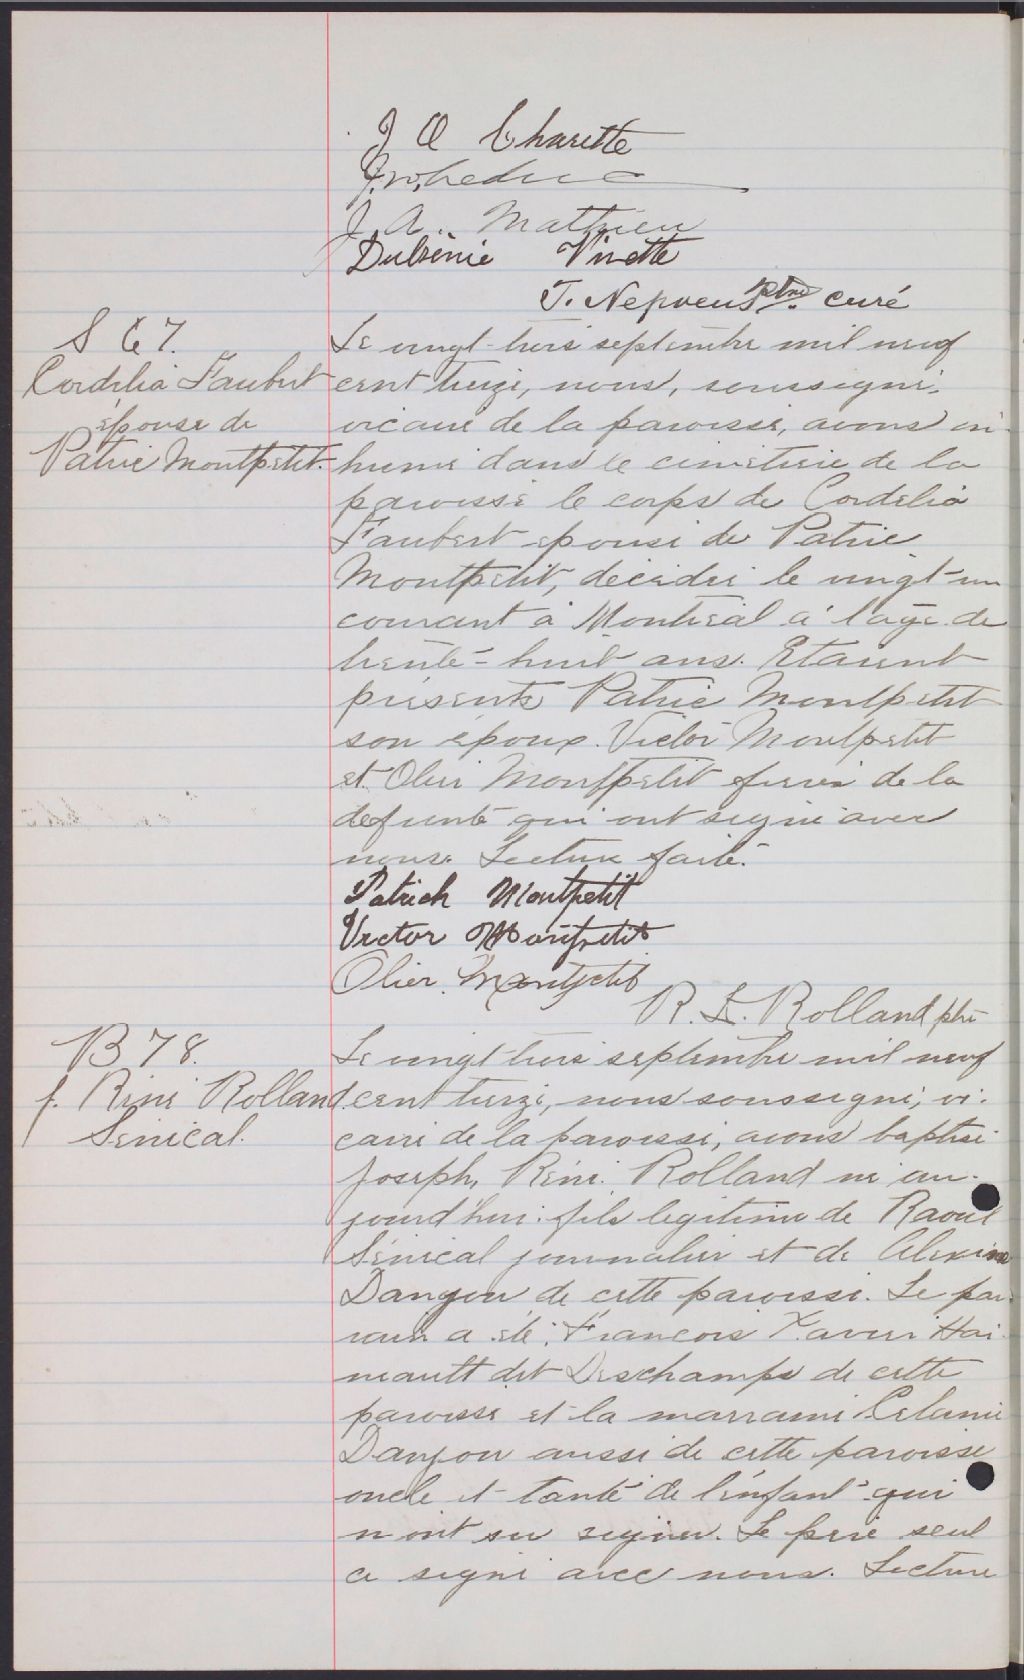 J O Charette
J. A. Mathieu
Vinette
T. Nepveu Ptre curé
S 67.
Cordelia Faubert
épouse de
Patric Montpetit.
Le vingt-trois septembre mil neuf
cent treize, nous, soussigné,
vicaire de la paroisse, avons in-
humé dans le cimetière de la
paroisse le corps de Cordelia
Faubert épouse de Patric
Montpetit, décédée le vingt-un
courant à Montréal à l'age de
trente-huit ans. Etaient
présents Patric Montpetit
son époux. Victor Montpetit
et Olier Montpetit frères de la
défunte qui ont signé avec
nous. Lecture faite.
Patrick Montpetit
Victor Montpetit
Olier Montpetit
R. L. Rolland ptre
B 78.
J. Réné Rolland
Sénécal.
Le vingt trois septembre mil neuf
cent treize, nous soussigné, vi-
caire de la paroisse, avons baptisé
Joseph, Réné. Rolland né au-
jourd'hui fils légitime de Raoul
Sénécal journalier et de Alexina
Danjou de cette paroisse. Le par-
rain a été François Xavier Hai-
neault dit Deschamps de cette
paroisse et la marraine
Danjou aussi de cette paroisse
oncle et tante de l'enfant qui
n'ont su signer. Le père seul
a signé avec nous. Lecture